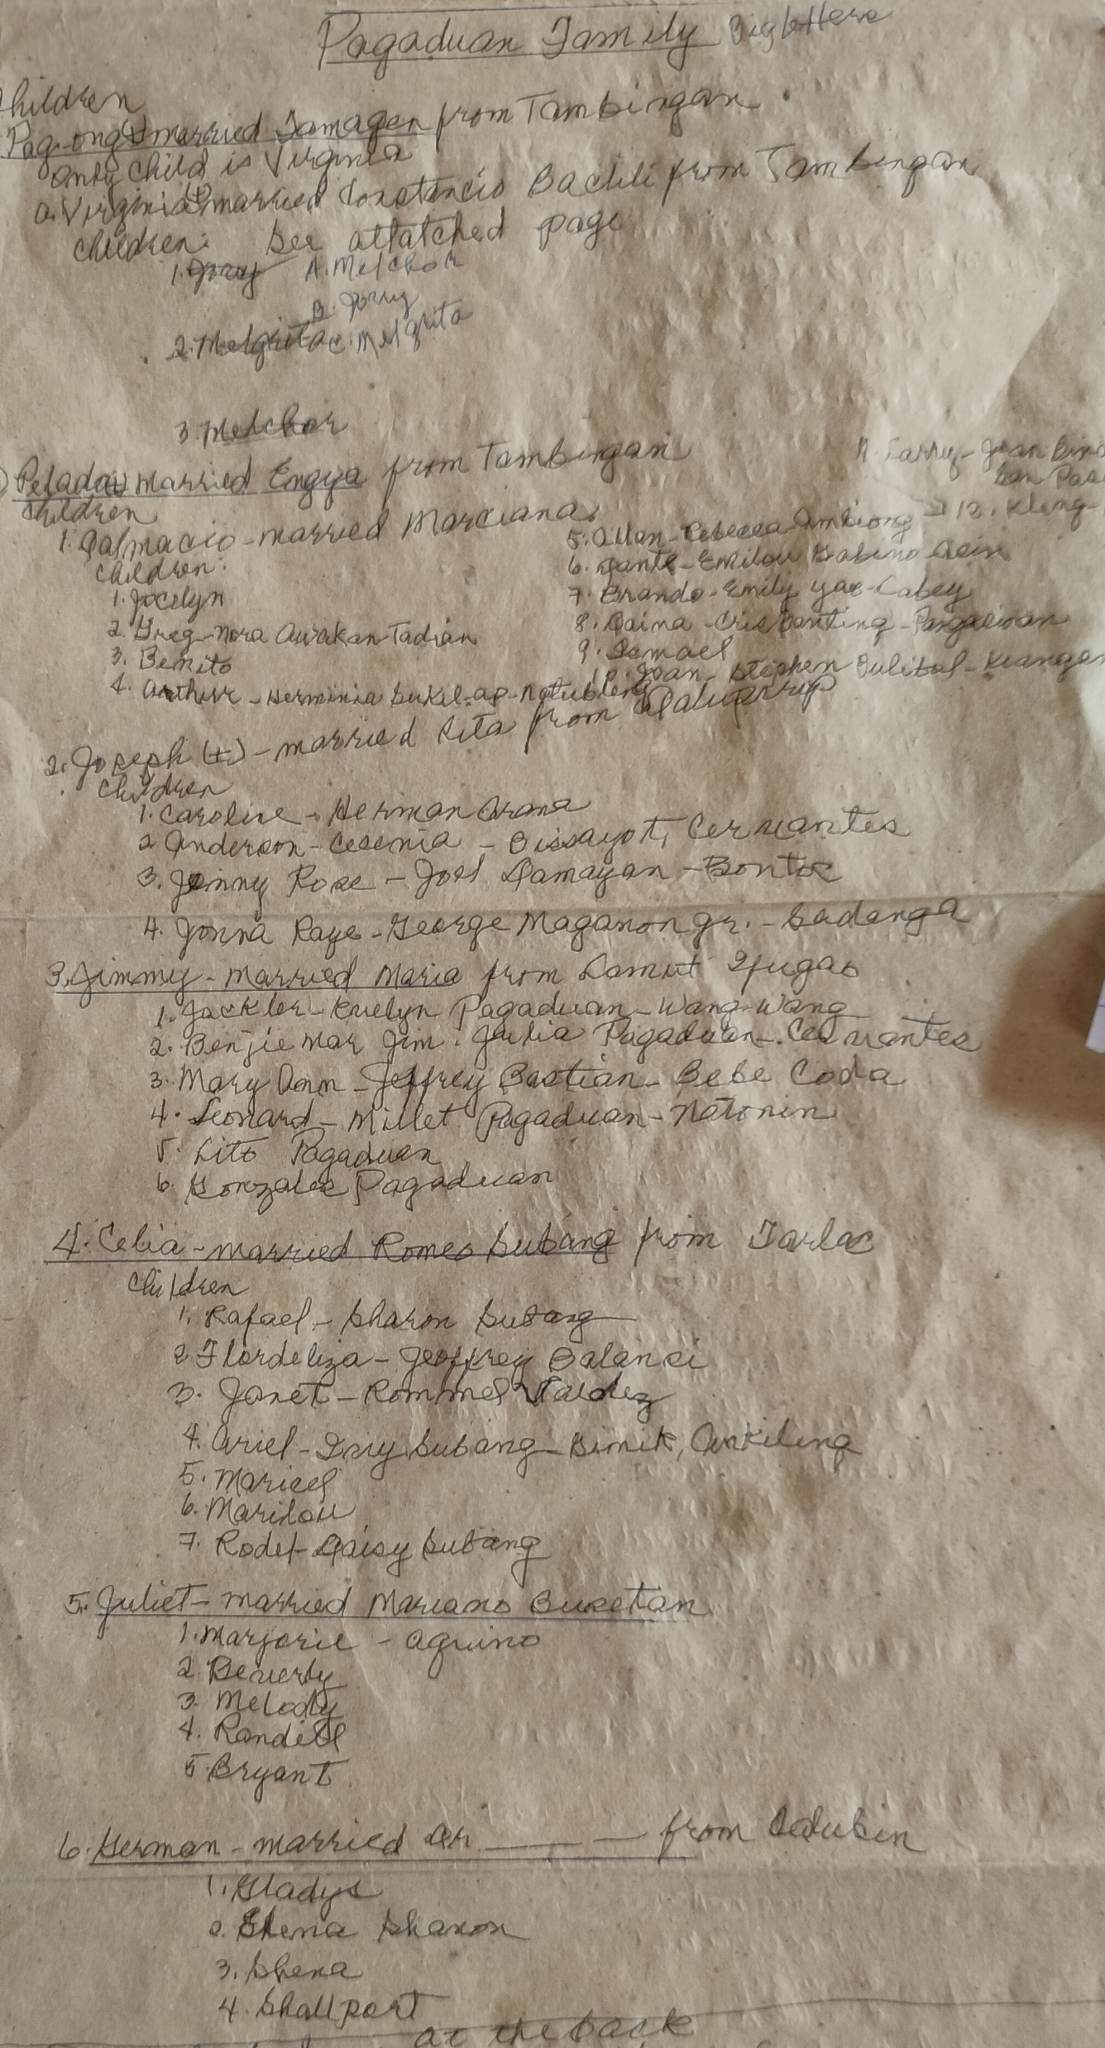 Pagaduan Family Big letters
Children
Pag-ong (+) married Tamagen from Tambingan
only child is Virginia
a. Virginia (+) married Constancio Bacbli from Tambingan
Children: See attatched page
1. Jorry A. Melchor
B. Jorry
2. Melgrita C. Melgrita
3. Melchor
Pelada (+) married Engya from Tambingan
Children
1. Galmacio - married Marciana
Children:
1. Jocelyn
2. Greg - Nora Awakan Tadian
3. Benito
4. Arthur - Herminia
5. Allan - Rebecca Ambiong
6. Dante - Emilou Gabino
7. Brando - Emily Yao - Cabey
8. Daina - Cris Banting - Pangasinan
9. Ismael
10. Joan - Stephen Dulibal - Kiangan
11. Larry - Joan
12. Kleng -
2. Joseph (+) - married Rita from
Children
1. Caroline - Herman Arana
2 Anderson - Cesenia - Bissayot, Cervantes
3. Jenny Rose - Joel Damayan - Bontoc
4. Jonna Raye - George Maganon Jr. - Sadanga
3. Jimmy - married Maria from Lamut Ifugao
1. Jackler - Evelyn Pagaduan - Wang-Wang
2. Benjie Mar Jim - Julia Pagaduan - Cervantes
3. Mary Ann - Jeffrey Bastian - Bebe Coda
4. Leonard - Millet Pagaduan - Natonin
5. Lito Pagaduan
6. Gonzales Pagaduan
4. Celia - married Romeo Subang from Tarlac
Children
1. Rafael - Sharon Subang
2 Flordeliza - Jeoffrey Balansi
3. Janet - Rommel Valdez
4. Ariel - Subang - Bimik, Ankileng
5. Maricel
6. Marilou
7. Rodel - Daisy Subang
5. Juliet - married Mariano Buketan
1. Marjorie - Aquino
2. Beverly
3. Melody
4. Randell
5 Bryant
6. Herman - married An ____ from Calubin
1. Gladys
2. Sharon
3. Shena
4. Shallport
at the back